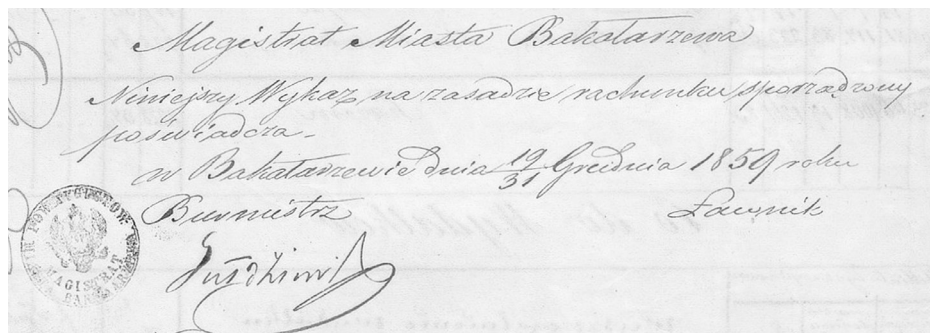 Magistrat Miasta Bakałarzewa
Niniejszy Wykaz na zasadzie rachunku sporządzony
poświadcza –
w Bakałarzewie dnia 19/31 Grudnia 1859 roku
Burmistrz Ławnik
MAGISTRAT